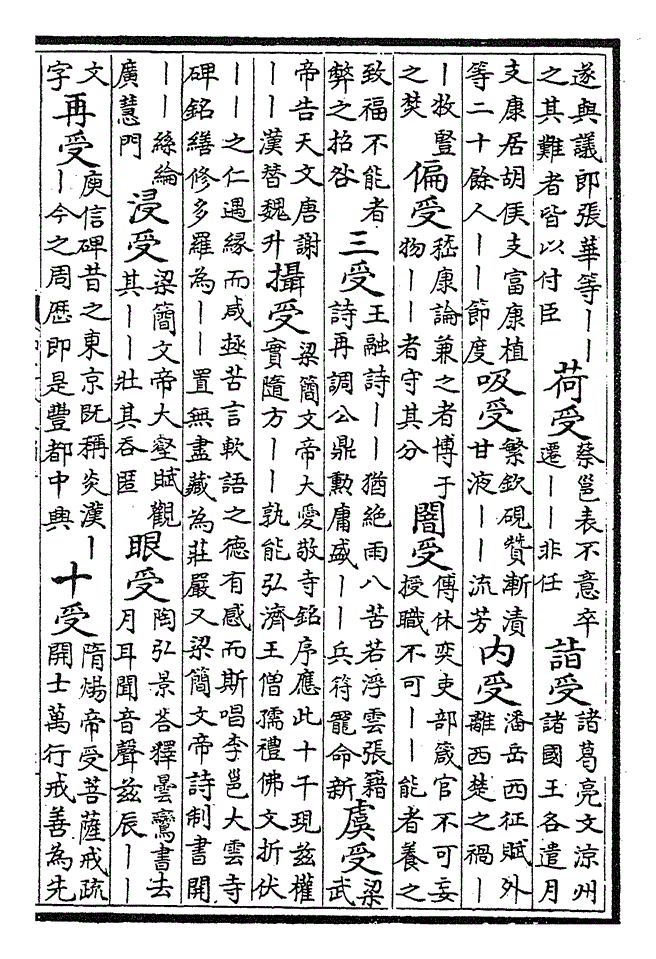 遂與議郎張華等丨丨之其難者皆以付臣 荷受 蔡邕表不意卒遷丨丨非任 詣受 諸葛亮文涼州諸國王各遣月
支康居胡侯支富康植等二十餘人丨丨節度 吸受 繁欽硯贊漸漬甘液丨丨流芳 内受 潘岳西征賦外離西楚之禍丨
丨牧豎之焚 偏受 嵇康論蒹之者博于物丨丨者守其分 闇受 傅休奕吏部箴官不可妄授職不可丨丨能者養之
致福不能者弊之招咎 三受 王融詩丨丨猶絶雨八苦若浮雲張籍詩再調公鼎勲庸盛丨丨兵符寵命新 虞受 梁武
帝告天文唐謝丨丨漢替魏升 攝受 梁簡文帝大愛敬寺銘序應此十千現兹權實隨方丨丨孰能弘濟王僧孺禮佛文折伏
丨丨之仁遇緣而咸拯苦言軟語之德有感而斯唱李邕大雲寺碑銘繕修多羅為丨丨置無盡藏為莊嚴又梁簡文帝詩制書開
丨丨絲綸廣慧門 浸受 梁簡文帝大壑賦觀其丨丨壯其吞匿 眼受 陶弘景答釋曇鸞書去月耳聞音聲兹辰丨丨
文字 再受 庾信碑昔之東京既稱炎漢丨丨今之周歷即是豐都中興 十受 隋煬帝受菩薩戒疏開士萬行戒善為先